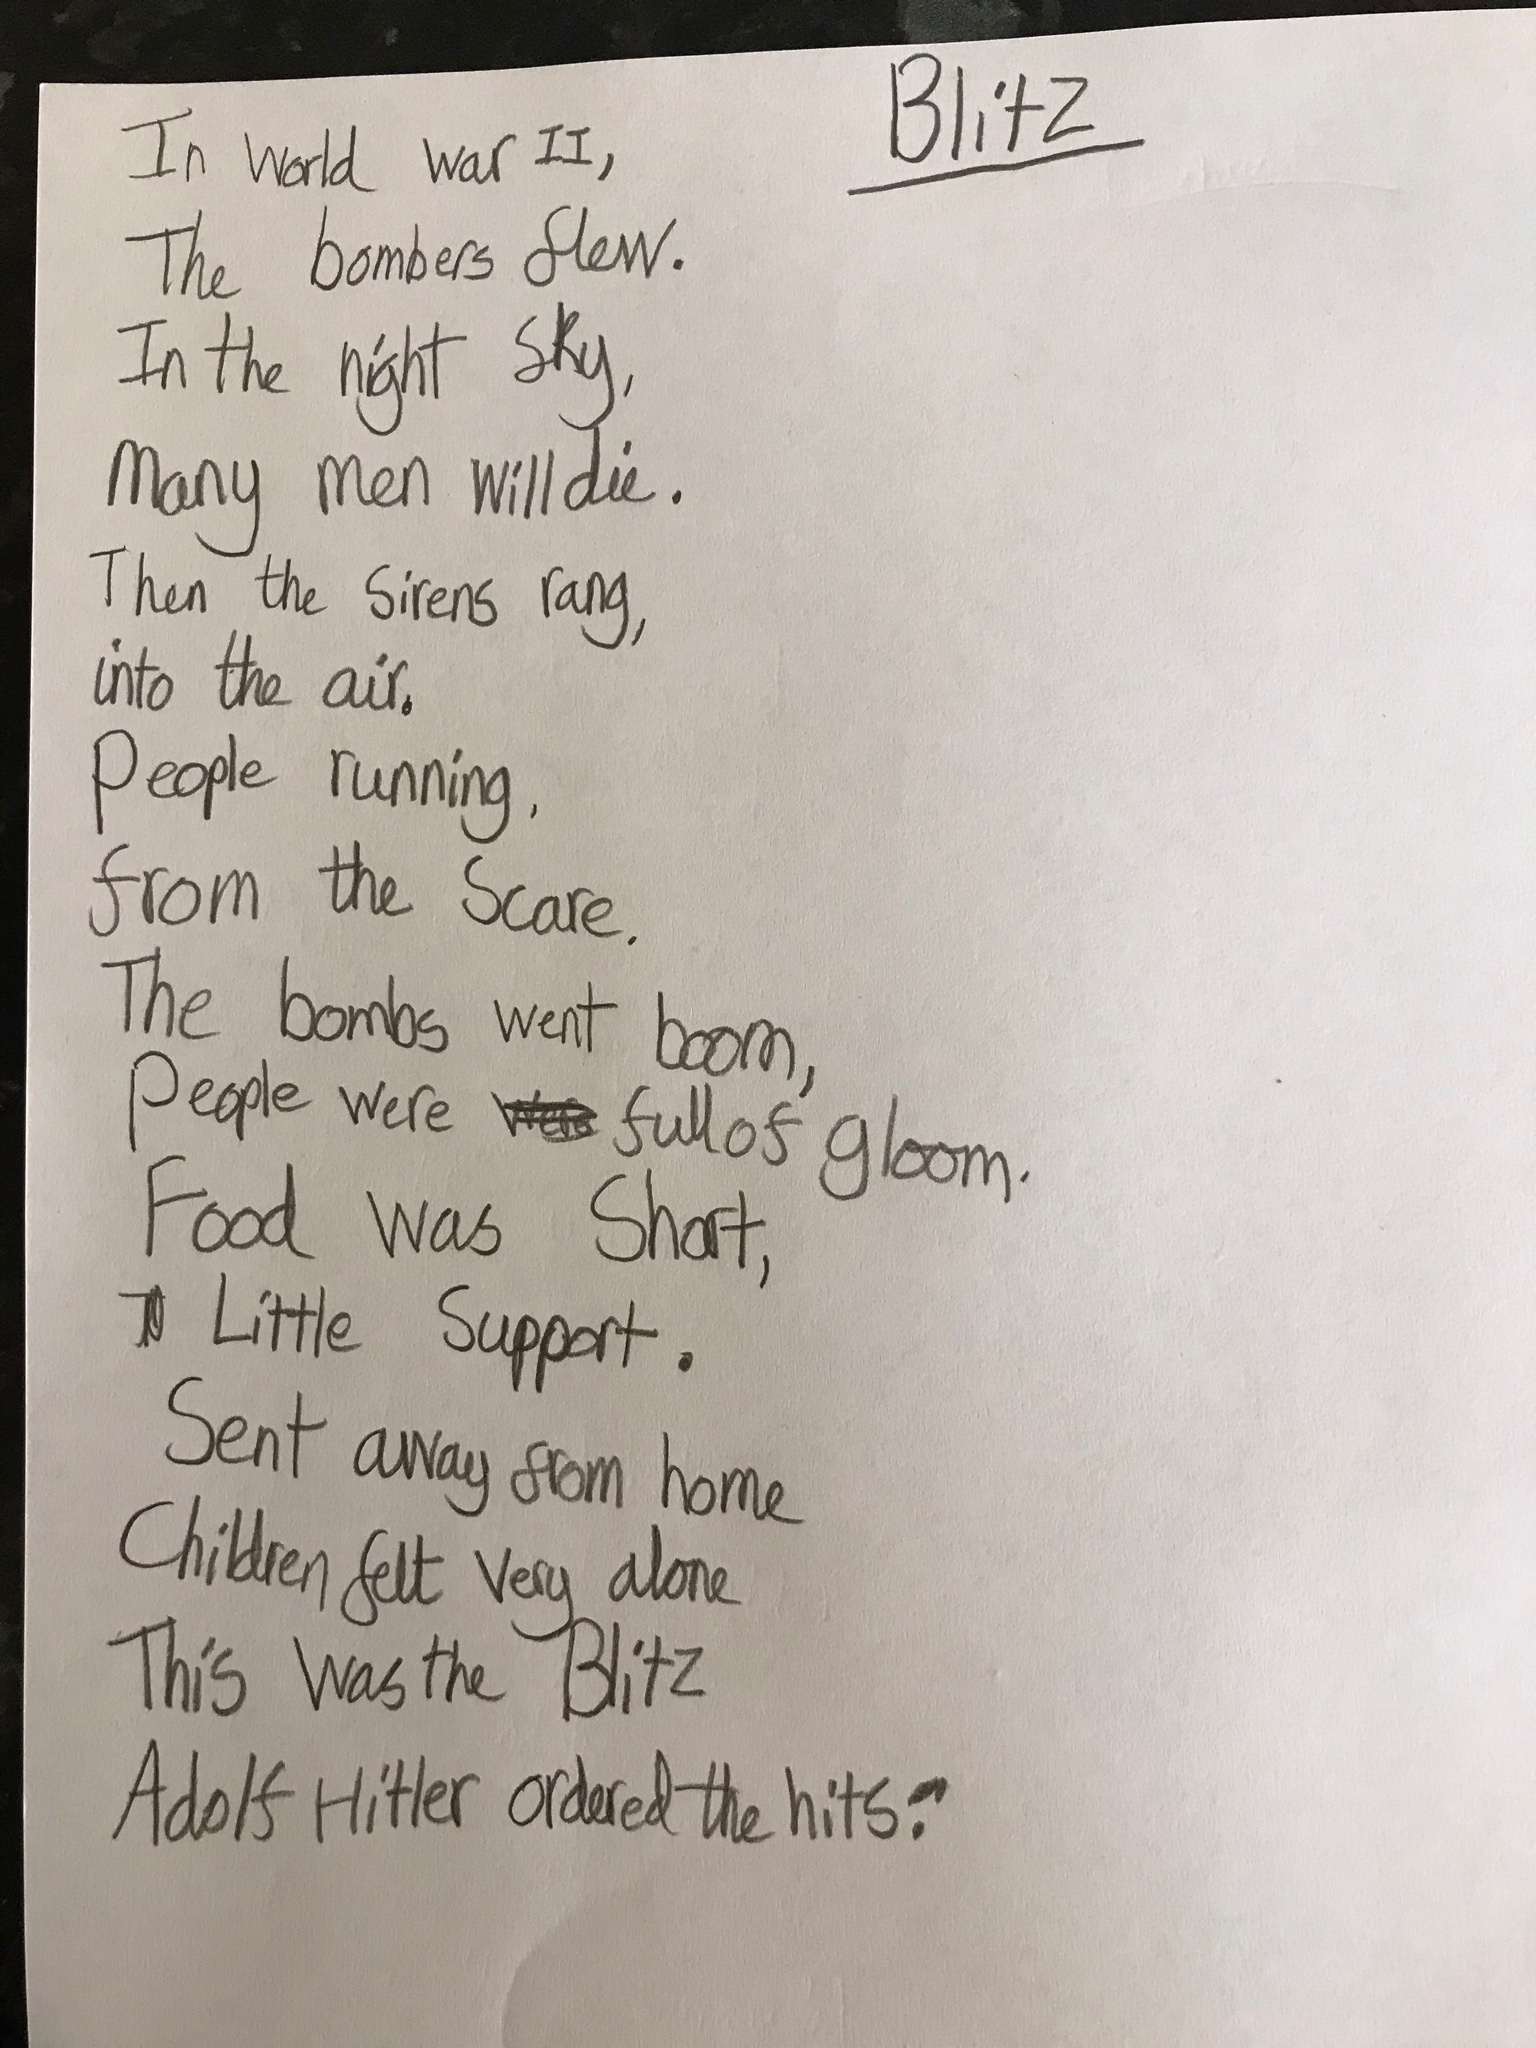 Blitz
In World war II,
The bombers flew.
In the night sky,
Many men will die.
Then the sirens rang,
into the air.
People running,
from the Scare.
The bombs went boom,
People were were full of gloom.
Food was Short,
Little Support.
Sent away from home
Children felt very alone
This was the Blitz
Adolf Hitler ordered the hits.